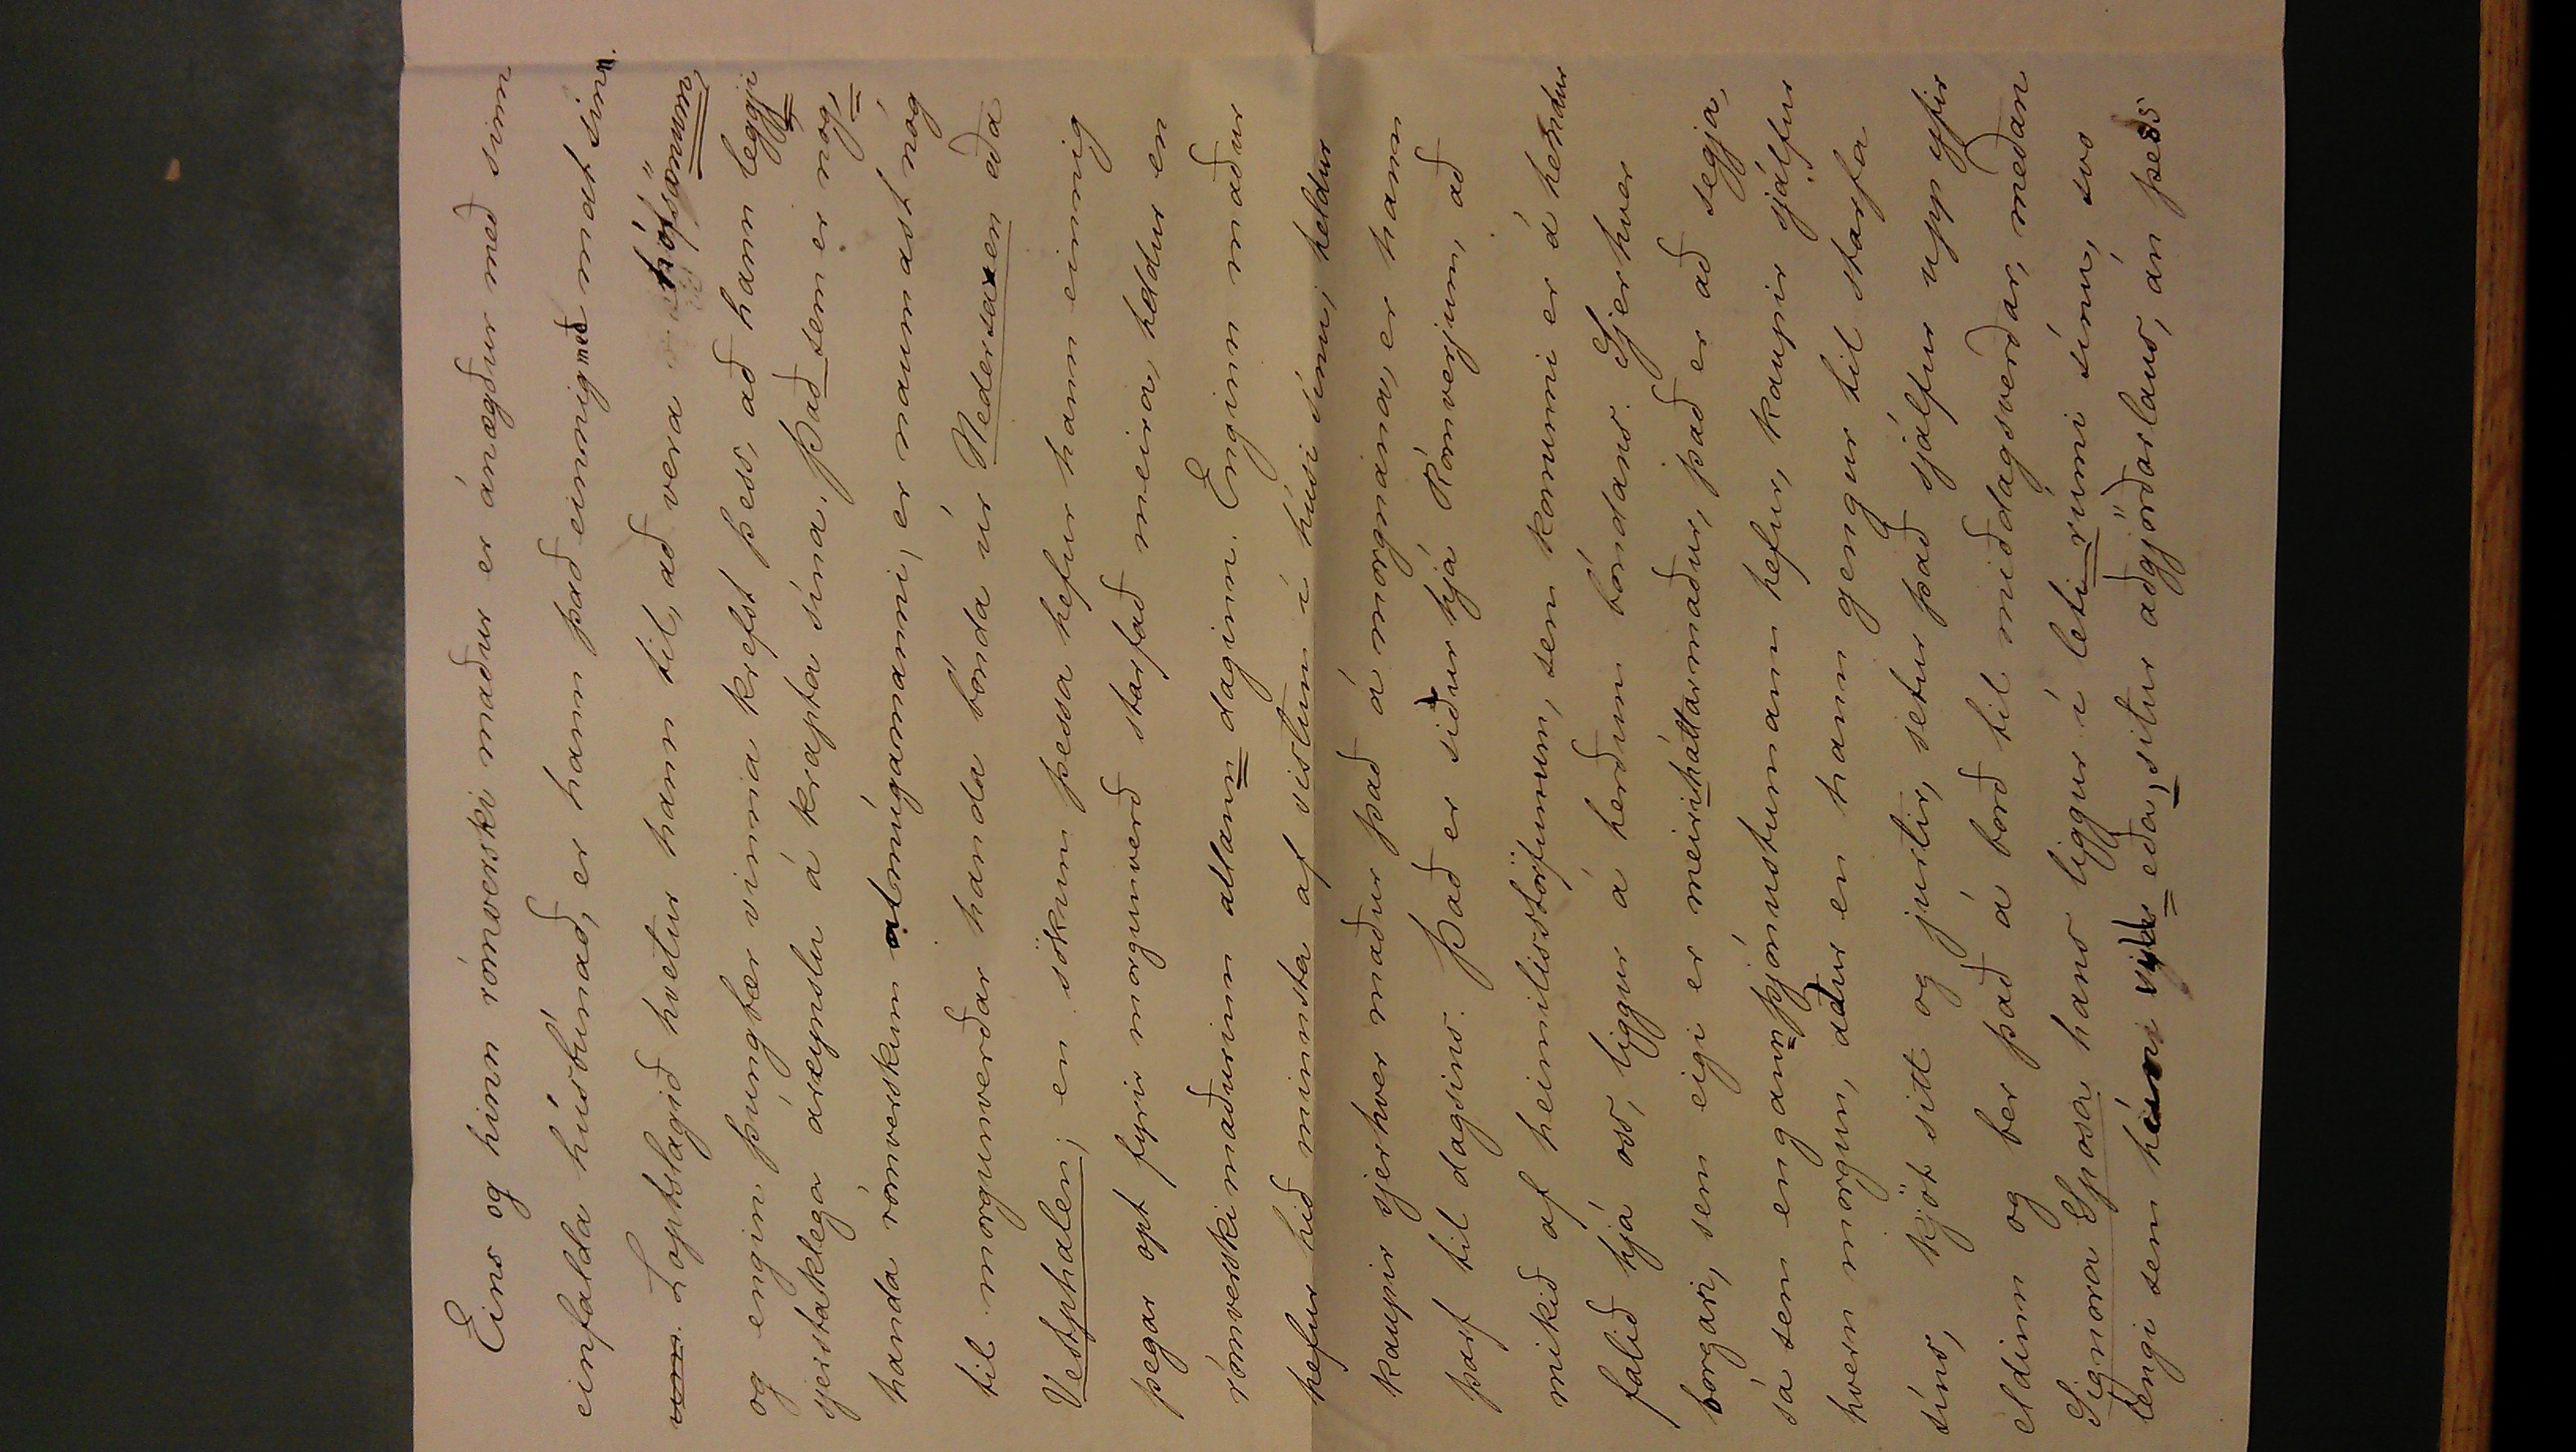 Eins og hinn rómverski maður er ánægður með sinn
einfalda húsbúnað, er hann það einnig með mat sinn.
um. Loptslagið hvetur hann til, að vera hófsömum,
og engin þungbær vinna krefst þess, að hann leggji
sjerstaklega áreynslu á krapta sína. Það sem er nóg,
handa rómverskum almúgamanni, er naumast nóg
til morgunverðar handa bónda úr Nedersaxen eða
Vestphalen; en sökum þessa hefur hann einnig
þegar opt fyrir morgunverð starfað meira, heldur en
rómverski maðurinn allann daginn. Enginn maður
hefur hið minnsta af vistum í húsi sínu, heldur
kaupir sjerhver maður það á morgnana, er hann
þarf til dagsins. Það er siður hjá Rómverjum, að
mikið af heimilisstörfunum, sem konunni er á hendur
falið hjá oss, liggur á herðum bóndans. Sjerhver
borgari, sem eigi er meiriháttarmaður, það er að segja,
sá sem engann þjónustumann hefur, kaupir sjálfur
hvern morgun, áður en hann gengur til starfa
síns, kjöt sitt og jurtir, setur það sjálfur upp yfir
eldinn og ber það á borð til miðdagsverðar, meðan
Signora Sposa hans liggur í leti rúmi sínu, svo
lengi sem henni eða, situr aðgjörðarlaus, án þess